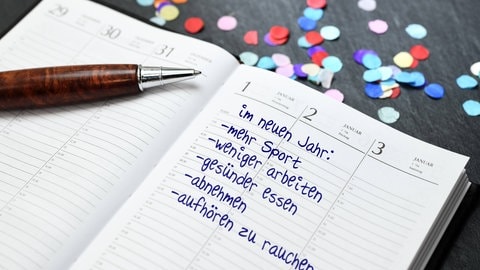 29
30
31
1
JANUAR
2
JANUAR
3
JANUAR
im neuen Jahr:
-mehr Sport
-weniger arbeiten
-gesünder essen
-abnehmen
-aufhören zu rauchen